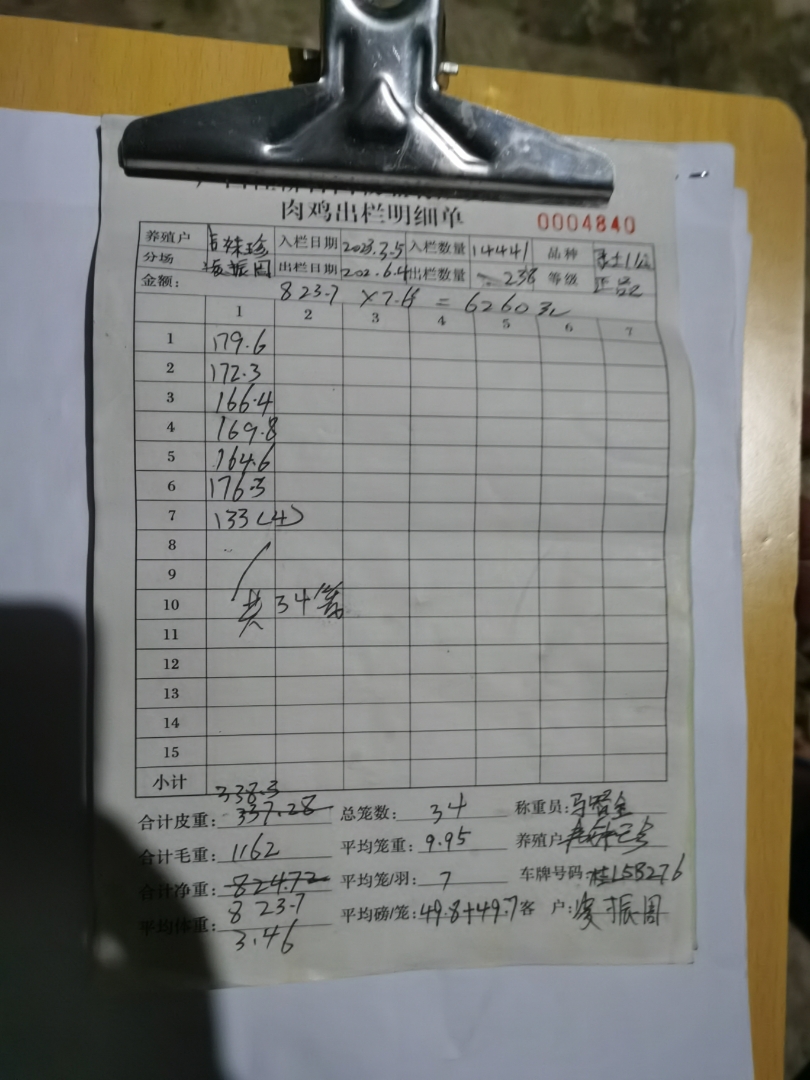 肉鸡出栏明细单 0004840
养殖户 珍 入栏日期 2023.3.5 入栏数量 14441 品种
分场 振周 出栏日期 202.6.4 出栏数量 238 等级 正品
金额: 823.7 × = 6260元
1 2 3 4 5 6 7
1 179.6
2 172.3
3 166.4
4 169.8
5 164.6
6 176.3
7 133(4)
8
9
10 共34笼
11
12
13
14
15
小计
338.3
合计皮重: 337.28 总笼数: 34 称重员:
合计毛重: 1162 平均笼重: 9.95 养殖户
合计净重: 824.72 平均笼/羽: 7 车牌号码: 桂L58276
823.7
平均体重: 3.46 平均磅/笼: 49.8+49.7 客 户: 振周